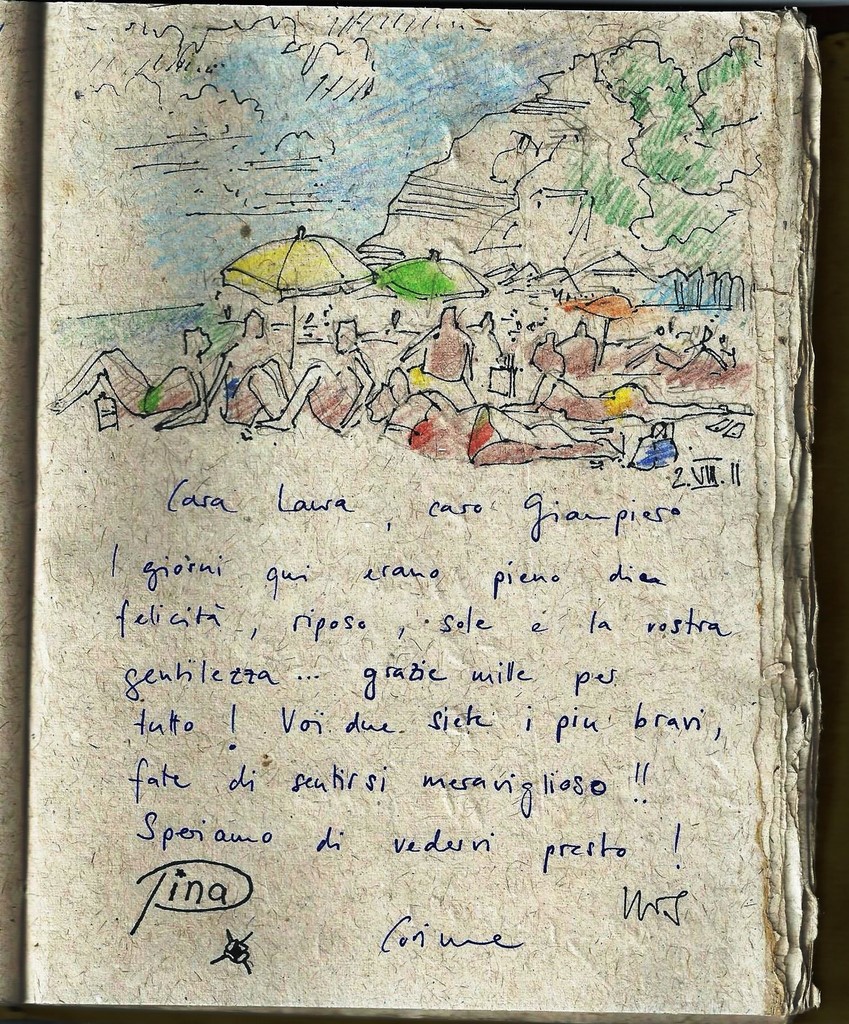 2.VIII.11
Cara Laura, caro Giampiero
I giorni qui erano pieno di
felicità, riposo, sole e la vostra
gentilezza... grazie mille per
tutto! Voi due siete i piu bravi,
fate di sentirsi meraviglioso!!
Speriamo di vedervi presto!
Tina
Corinne